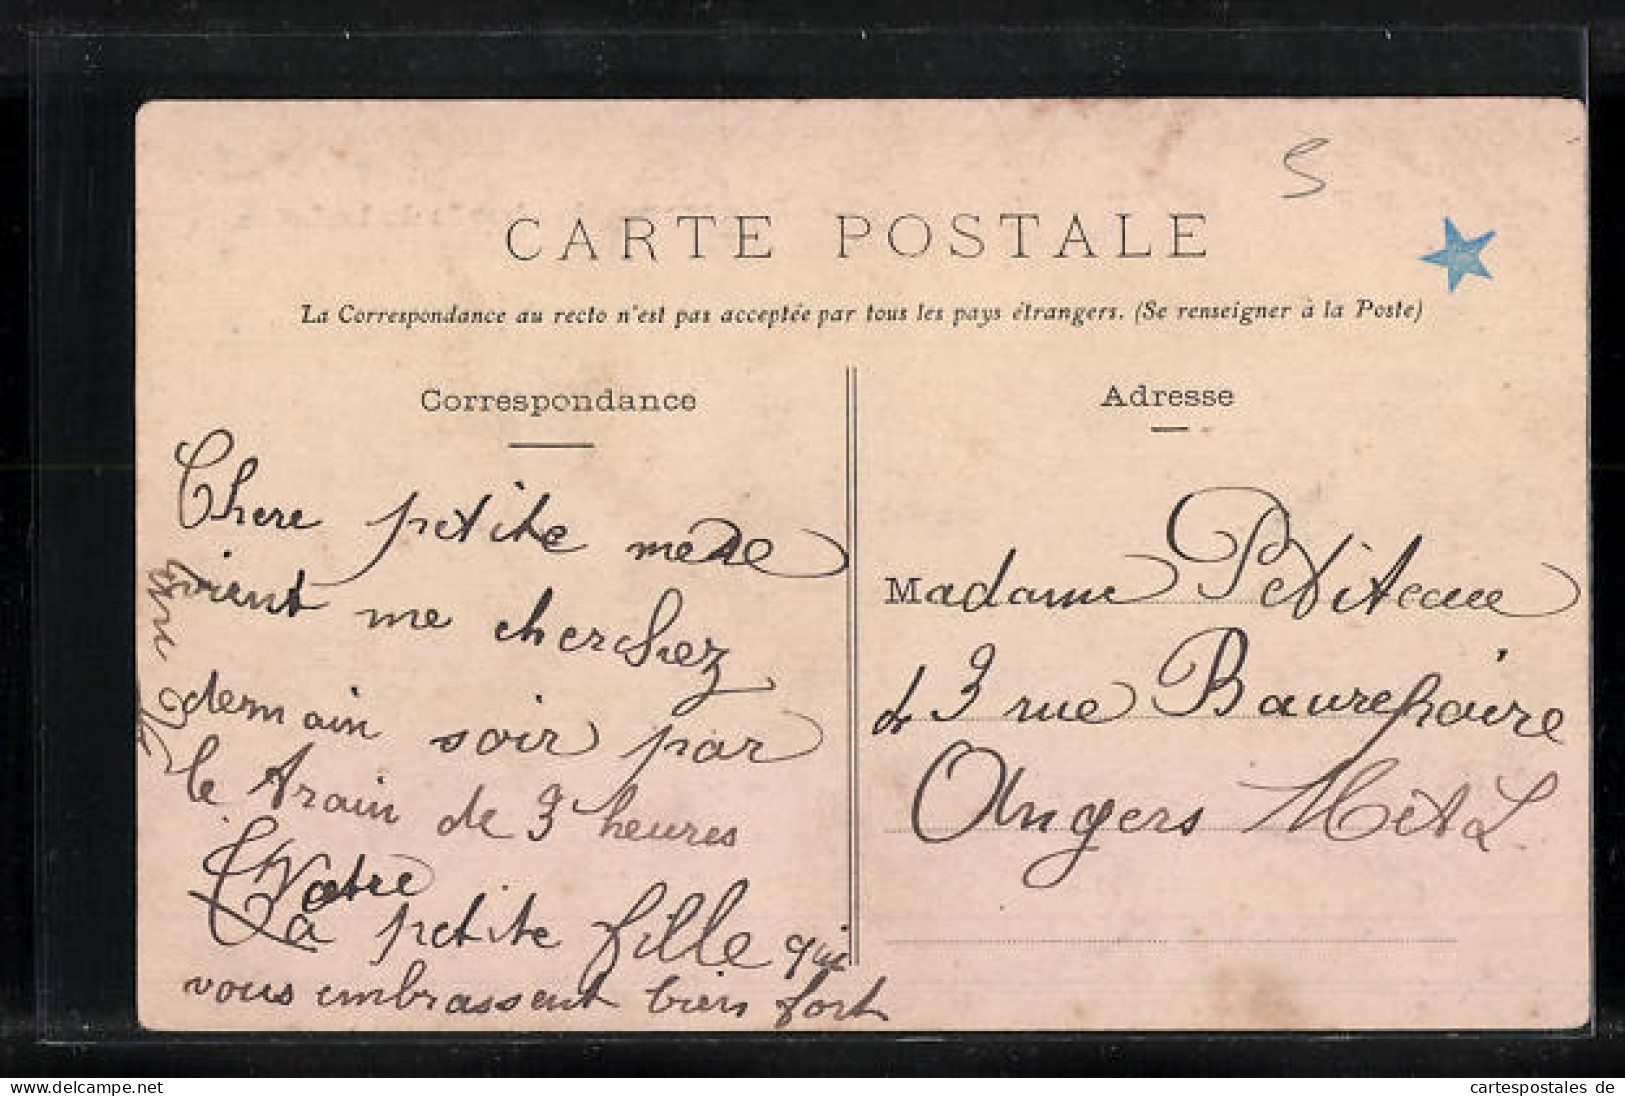 S
CARTE POSTALE
La Correspondance au recto n'est pas acceptée par tous les pays étrangers. (Se renseigner à la Poste)
Correspondance
Chere petite mere
vient me cherchez
demain soir par
le train de 3 heures
Votre
La petite fille qui
vous embrassent bien fort
Adresse
Madame Petiteau
3 rue Baurepaire
Angers M et L
cartespostales de